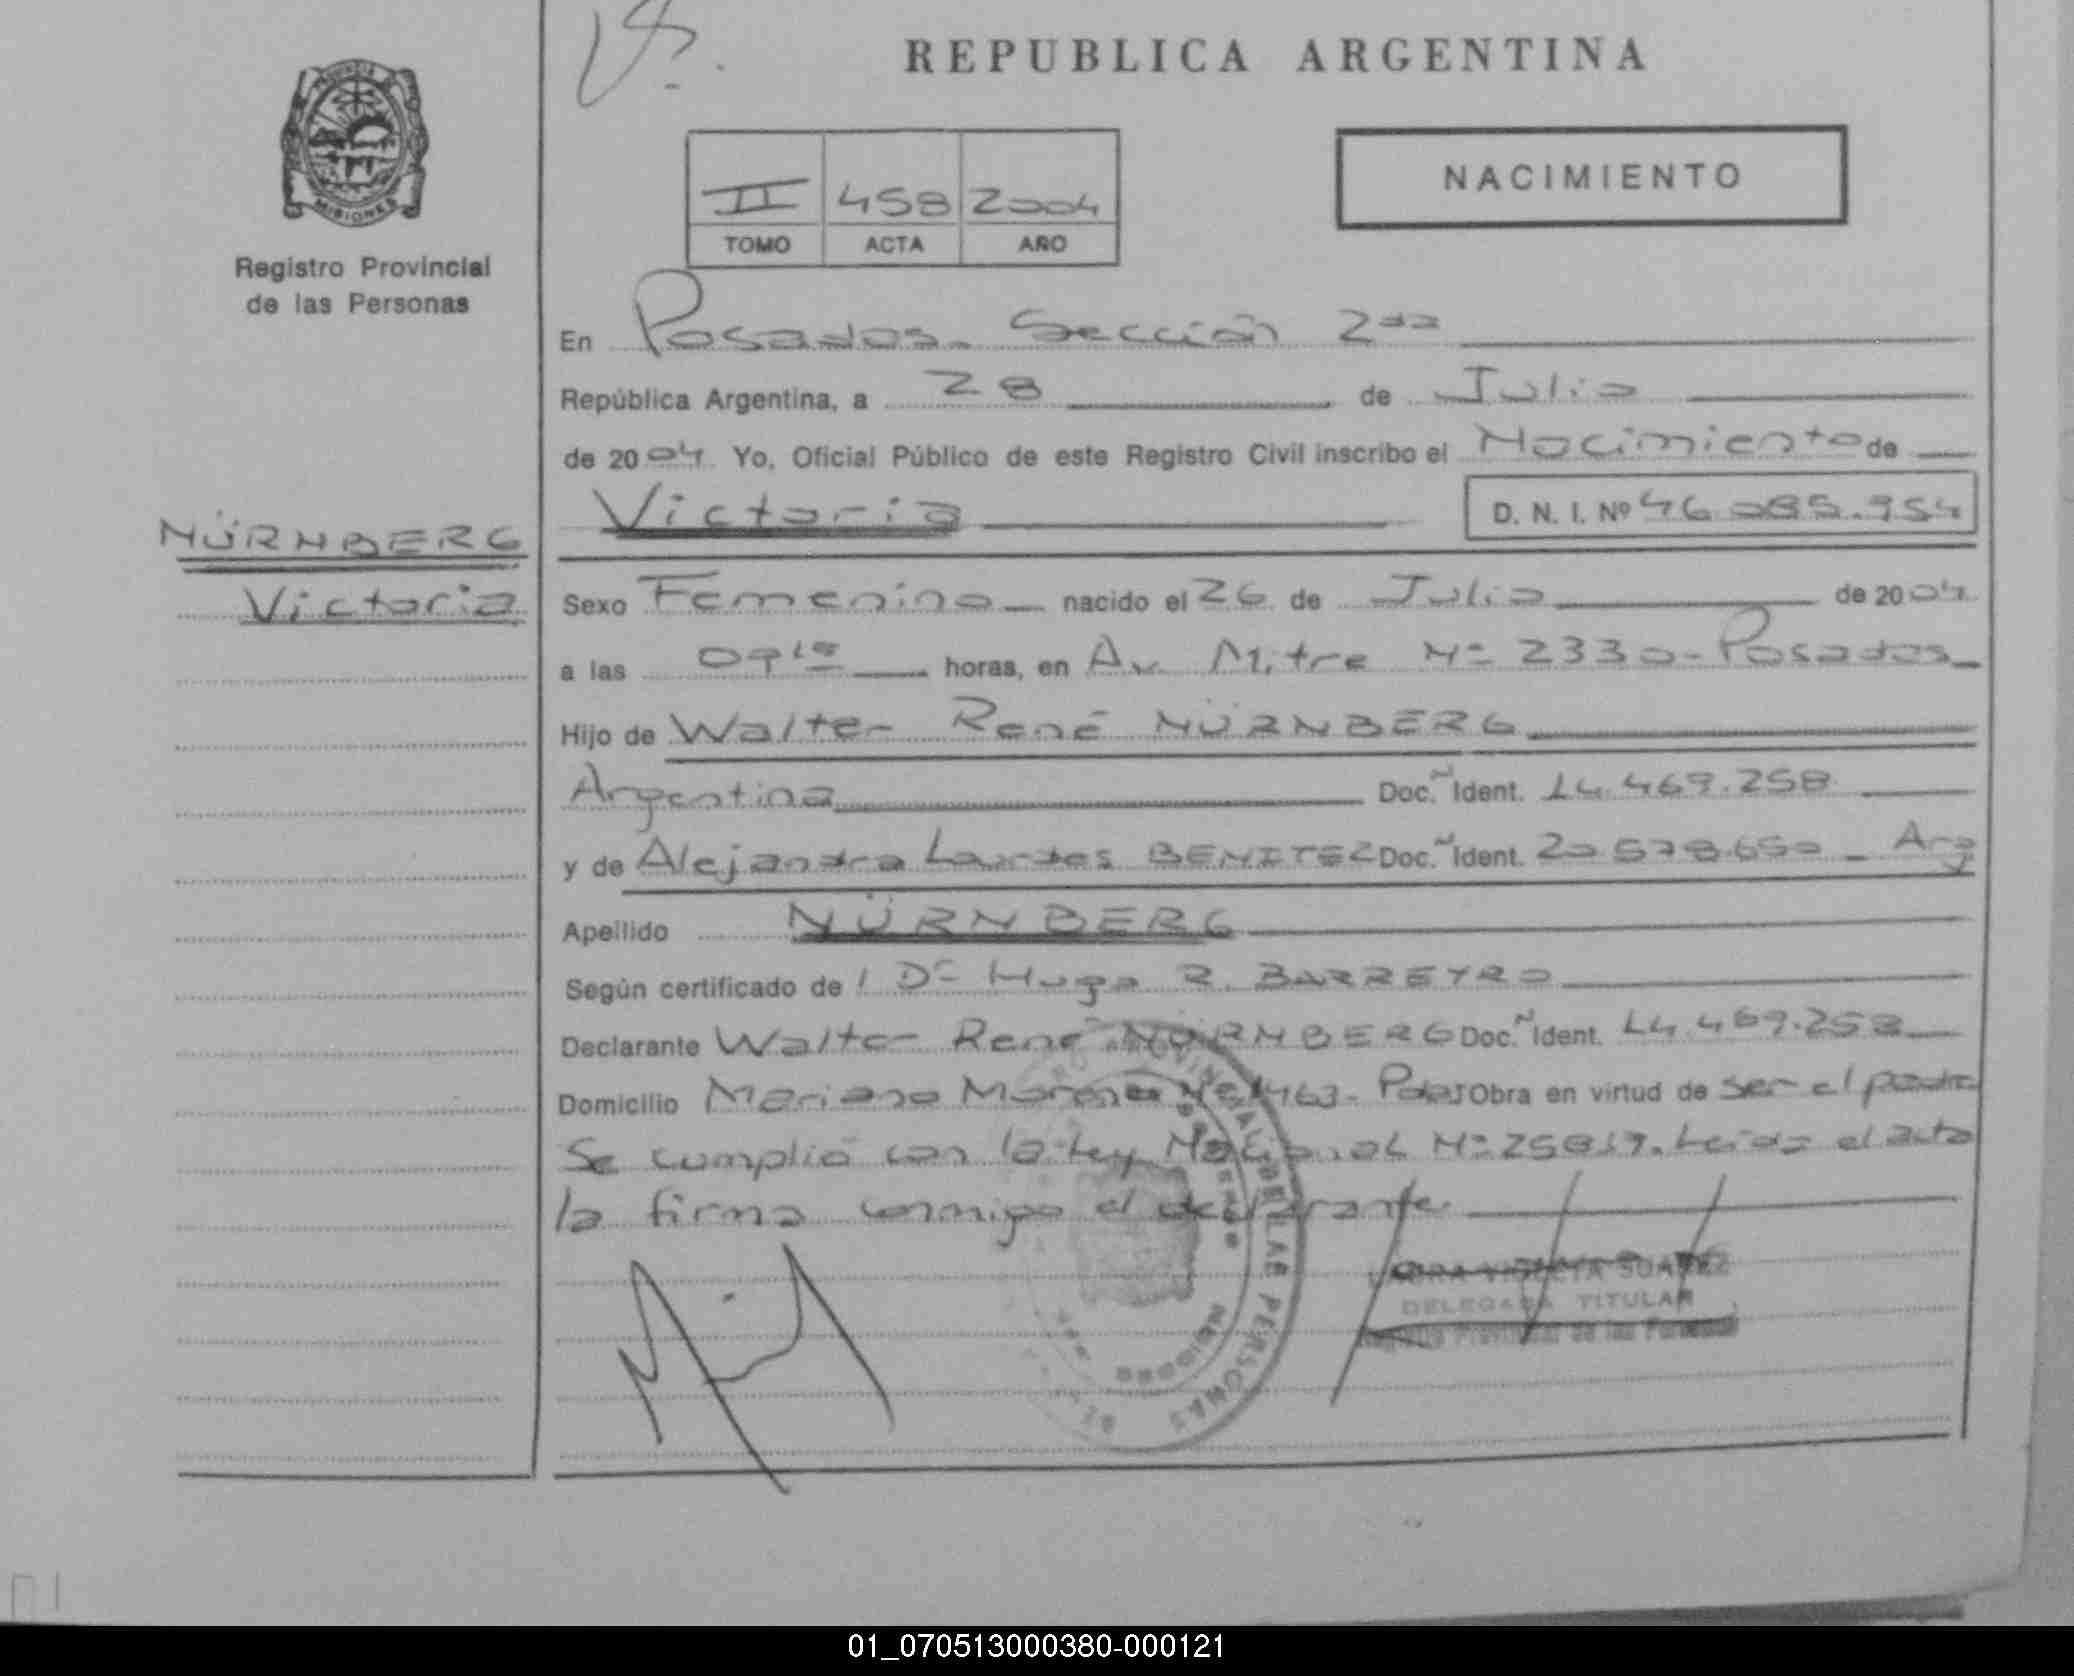 REPUBLICA ARGENTINA
PROVINCIA
MISIONES
Registro Provincial
de las Personas
NACIMIENTO
II 458 2004
TOMO ACTA AÑO
En Posadas. Sección 2da
República Argentina, a 28 de Julio
de 2004 Yo, Oficial Público de este Registro Civil inscribo el Nacimiento de
Victoria D. N. I. Nº 46.085.954
NÜRNBERG
Victoria
Sexo Femenino nacido el 26 de Julio de 2004
a las 09 15 horas, en Av. Mitre Nº 2330 - Posadas
Hijo de Walter René NÜRNBERG
Argentina Doc. Ident. 14.469.258
y de Alejandra Lourdes BENITEZ Doc. Ident. 20.578.650 - Arg
Apellido NÜRNBERG
Según certificado de / Dr Hugo R. BARREYRO
Declarante Walter René NÜRNBERG Doc. Ident. 14.469.258
Domicilio Mariano Moreno Nº 1463 - Pdas Obra en virtud de ser el padre
Se cumplió con la Ley Nacional Nº 25819. Leida el acta
la firma conmigo el declarante
SUAREZ
DELEGADA TITULAR
Registro Provincial de las Personas
DE LAS PERSONAS
01_070513000380-000121